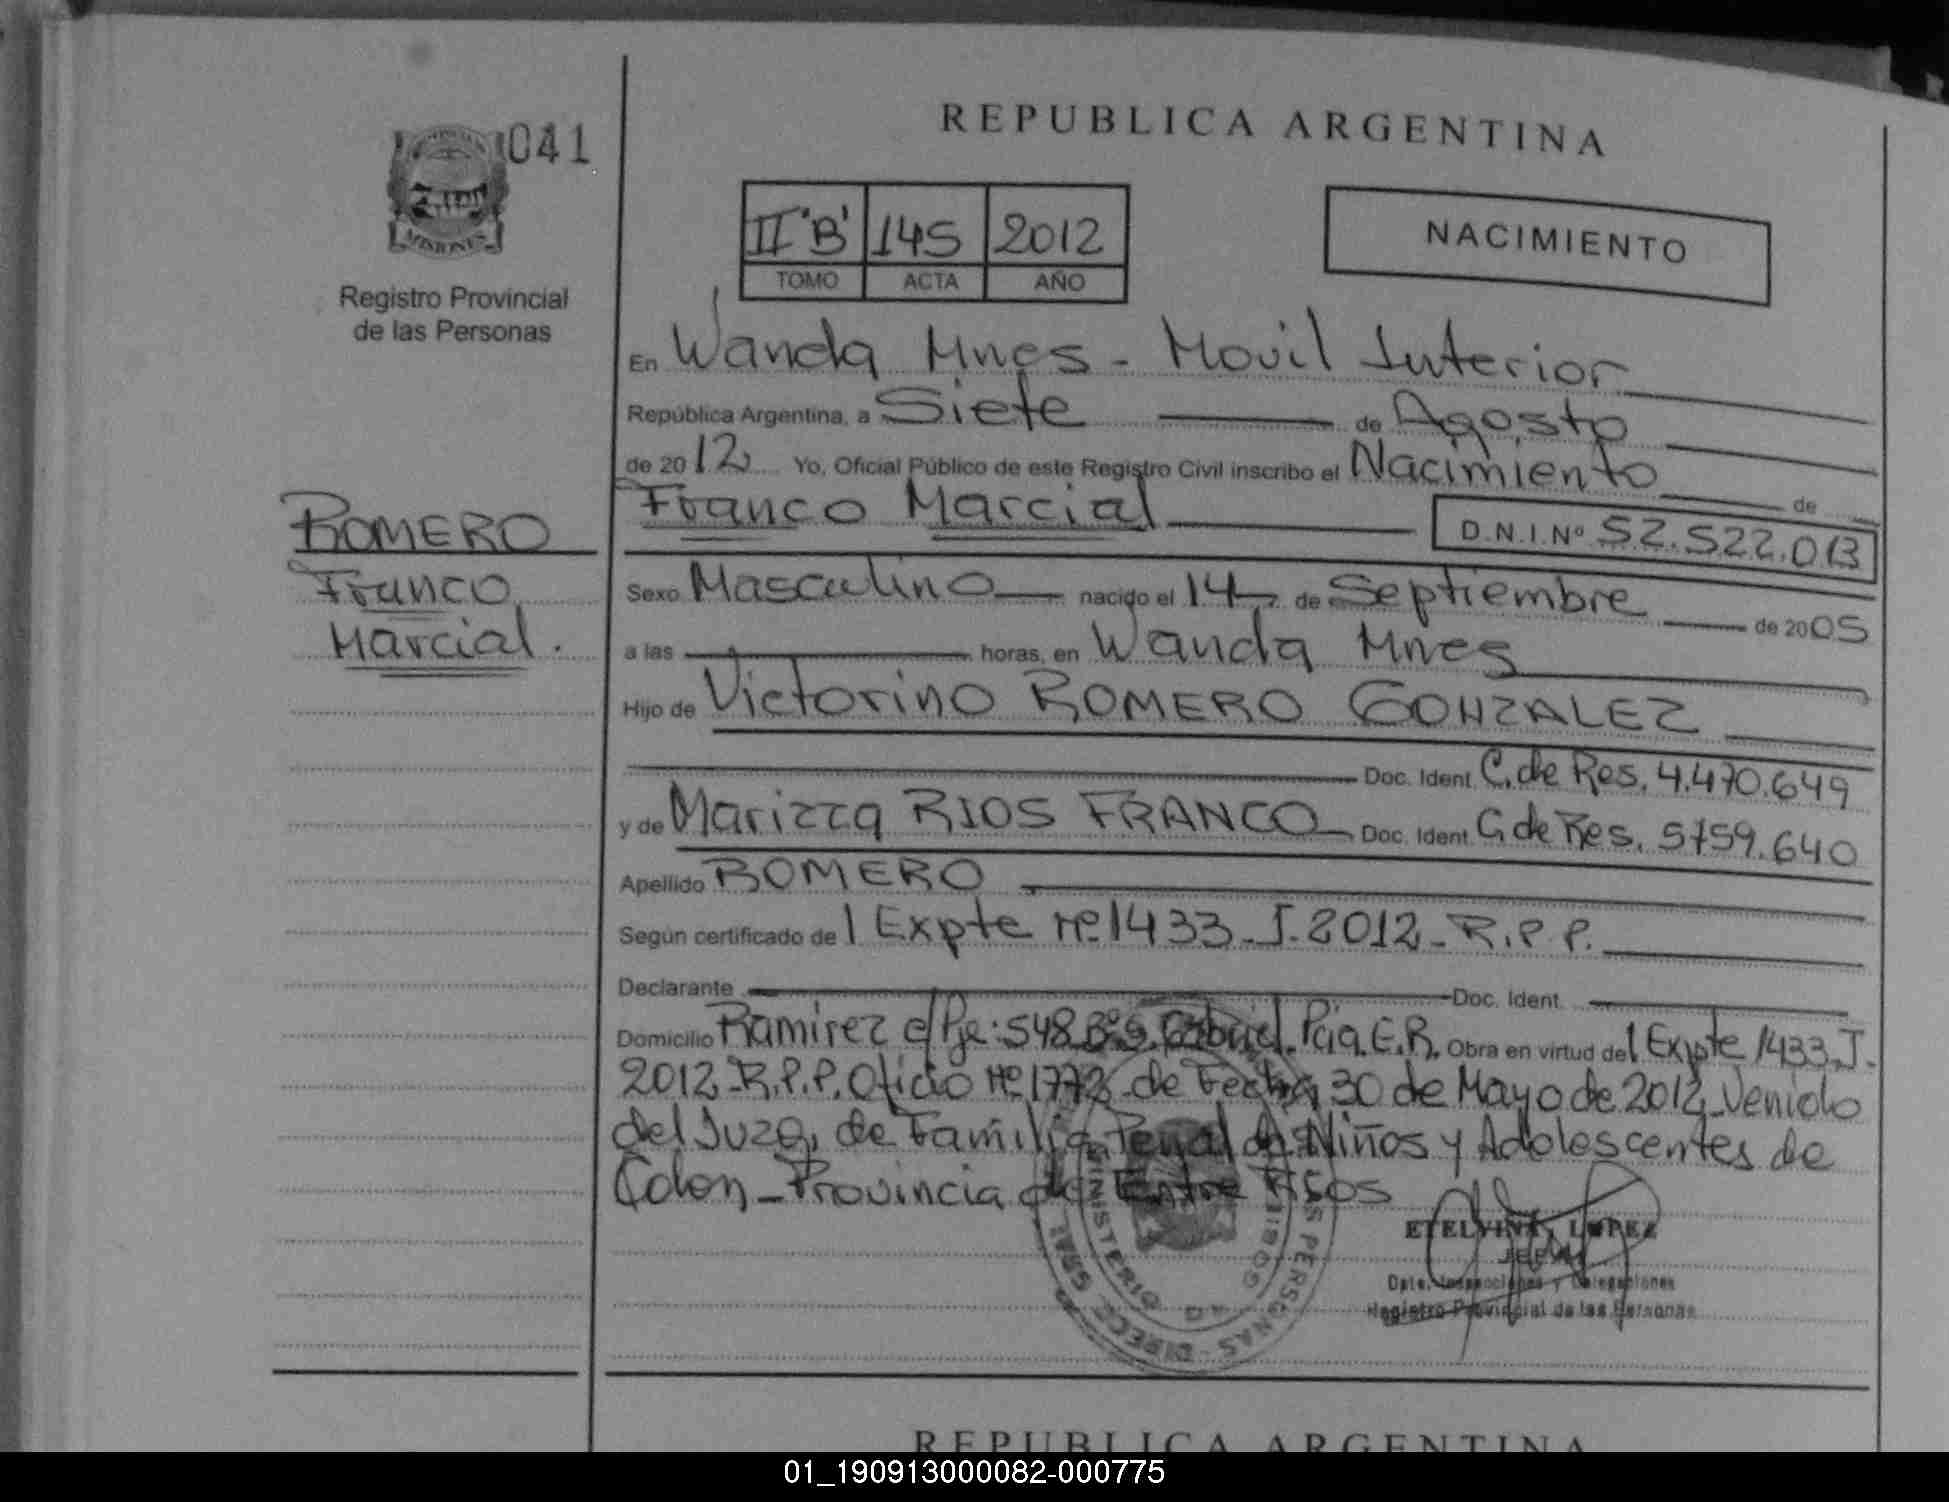 041
MISIONES
Registro Provincial
de las Personas
ROMERO
Franco
Marcial.
REPUBLICA ARGENTINA
II "B" 145 2012
TOMO ACTA AÑO
NACIMIENTO
En Wanda Mnes - Movil Interior
República Argentina, a Siete de Agosto
de 2012 Yo, Oficial Público de este Registro Civil inscribo el Nacimiento de
Franco Marcial D.N.I. Nº 52.522.013
Sexo Masculino nacido el 14 de Septiembre de 2005
a las horas, en Wanda Mnes
Hijo de Victorino ROMERO GONZALEZ
Doc. Ident. C. de Res. 4.470.649
y de Marizza RIOS FRANCO Doc. Ident. C. de Res. 5759.640
Apellido ROMERO
Según certificado de l Expte Nº 1433-J-2012-R.P.P.
Declarante Doc. Ident.
Domicilio Ramirez c/Pje: 548 Bº S. Gabriel. Pcia. E.R. Obra en virtud del Expte 1433-J.
2012-R.P.P. Oficio Nº 1772 de Fecha 30 de Mayo de 2012-Venido
del Juzg. de Familia Penal de Niños y Adolescentes de
Colon - Provincia de Entre Rios
ETELVINA LOPEZ
JEFA
Dpto. Inspecciones y Delegaciones
Registro Provincial de las Personas
MINISTERIO
PERSONAS - DIRECC
REPUBLICA ARGENTINA
01_190913000082-000775